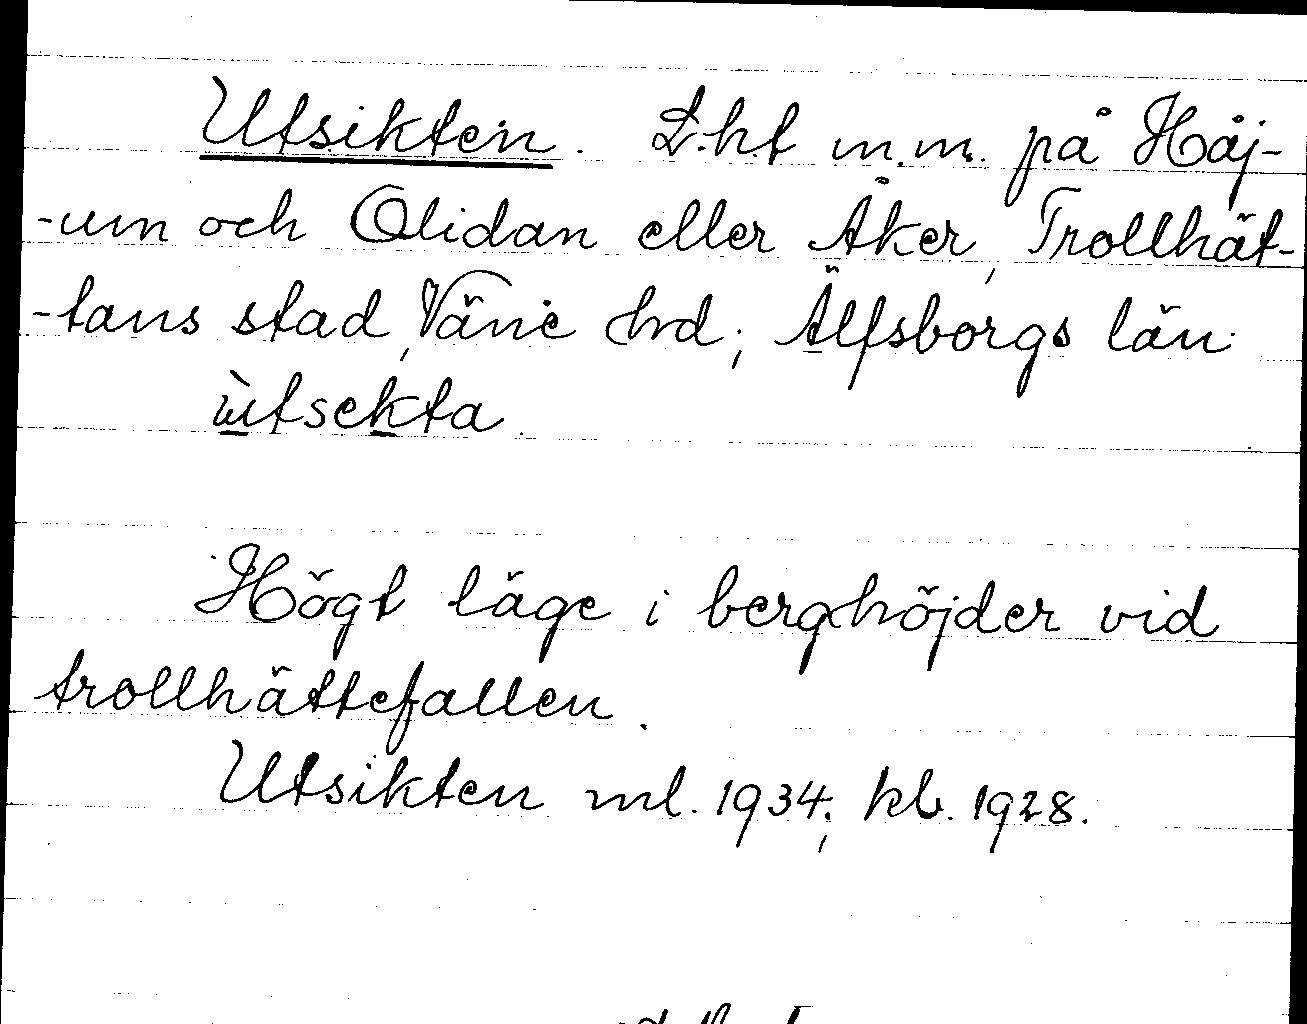 Utsikten. L.ht m.m. på Håj-
-um och Olidan eller Åker, Trollhät-
-tans stad, Väne hd; Älfsborgs län
ùtsekta.
Högt läge i berghöjder vid
trollhättefallen.
Utsikten ml. 1934; kb. 1928.